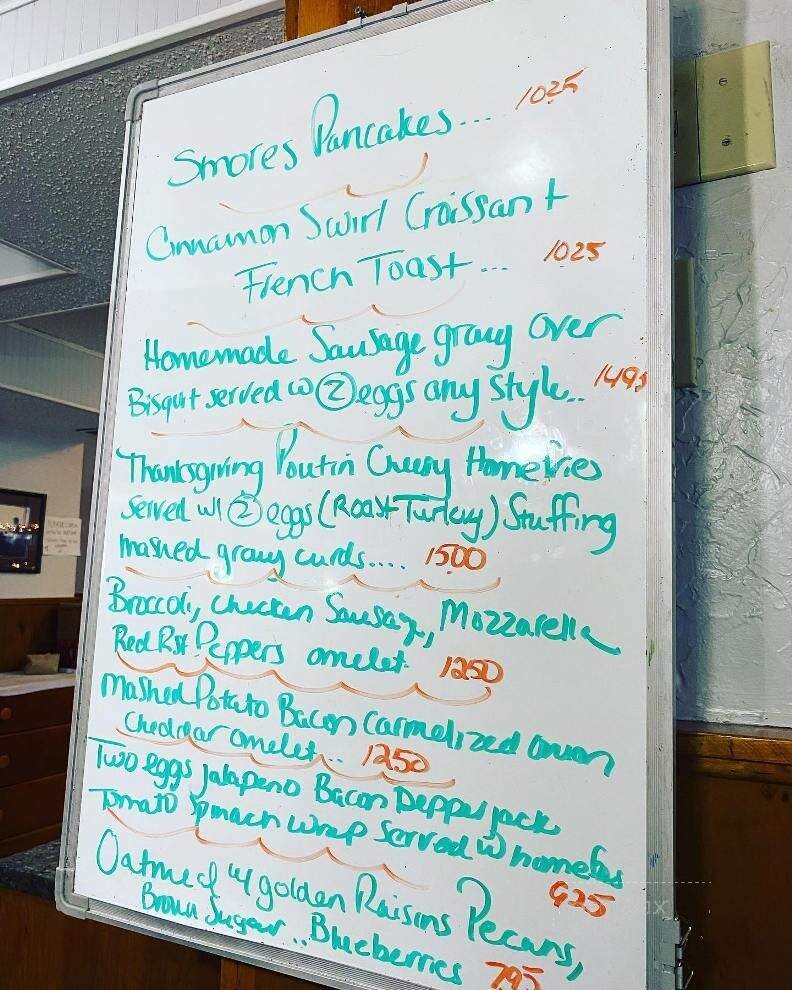 Smores Pancakes... 1025
Cinnamon Swirl Croissant
French Toast... 1025
Homemade Sausage gravy over
Bisquit served w 2 eggs any style.. 1495
Thanksgiving Poutin Cheesy Homefries
served w/ 2 eggs (Roast Turkey) Stuffing
mashed gravy curds.... 1500
Broccoli, chicken Sausage, Mozzarella
Red Rst Peppers omelet 1250
Mashed Potato Bacon Carmelized onion
Cheddar omelet... 1250
Two eggs jalapeno Bacon Pepper jack
Tomato Spinach wrap Served w homefries
925
Oatmeal w/ golden Raisins Pecans,
Brown Sugar.. Blueberries 795